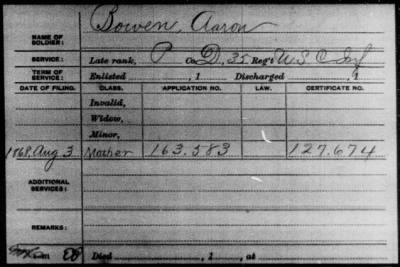 Bowen, Aaron
NAME OF SOLDIER:
SERVICE: Late rank, P Co. D, 35 Reg't U S C Inf
TERM OF SERVICE: Enlisted , 1 Discharged , 1
DATE OF FILING. CLASS. APPLICATION NO. LAW. CERTIFICATE NO.
Invalid,
Widow,
Minor,
1868, Aug 3 Mother 163.583 127.674
ADDITIONAL SERVICES:
REMARKS:
Died , 1 , at